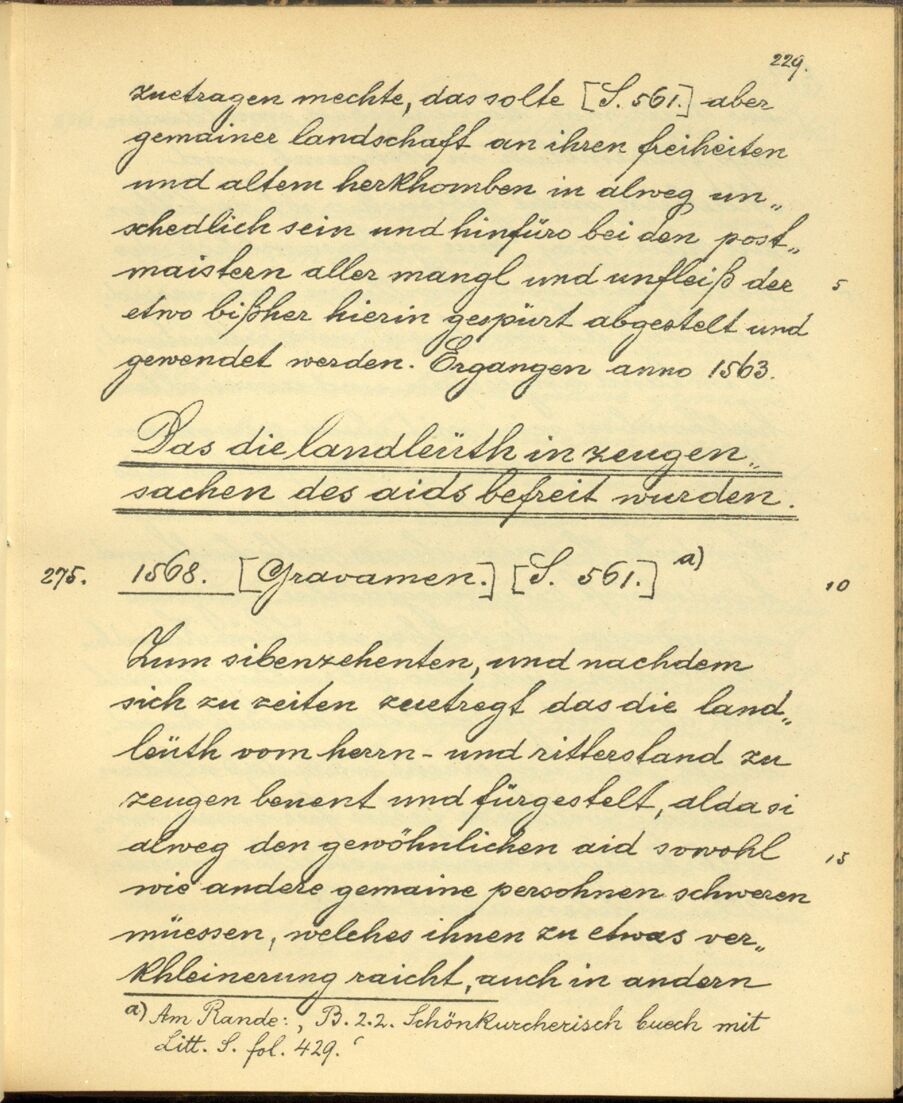 229.
zuetragen mechte, das solte [S. 561.] aber
gemainer landschaft an ihren freiheiten
und altem herkhomben in alweg un„
schedlich sein und hinfüro bei den post„
maistern aller mangl und unfleiß der 5
etwo bißher hierin gespürt abgestelt und
gewendet werden. Ergangen anno 1563.
Das die landleüth in zeugen„
sachen des aids befreit wurden.
275. 1568. [Gravamen.] [S. 561.] a) 10
Zum sibenzehenten, und nachdem
sich zu zeiten zuetregt das die land„
leüth vom herrn- und ritterstand zu
zeugen benent und fürgestelt, alda si
alweg den gewöhnlichen aid sowohl 15
wie andere gemaine persohnen schweren
müessen, welches ihnen zu etwas ver„
khleinerung raicht, auch in andern
a) Am Rande: ‚ B. 2.2. Schönkurcherisch buech mit
Litt. S. fol. 429.‘